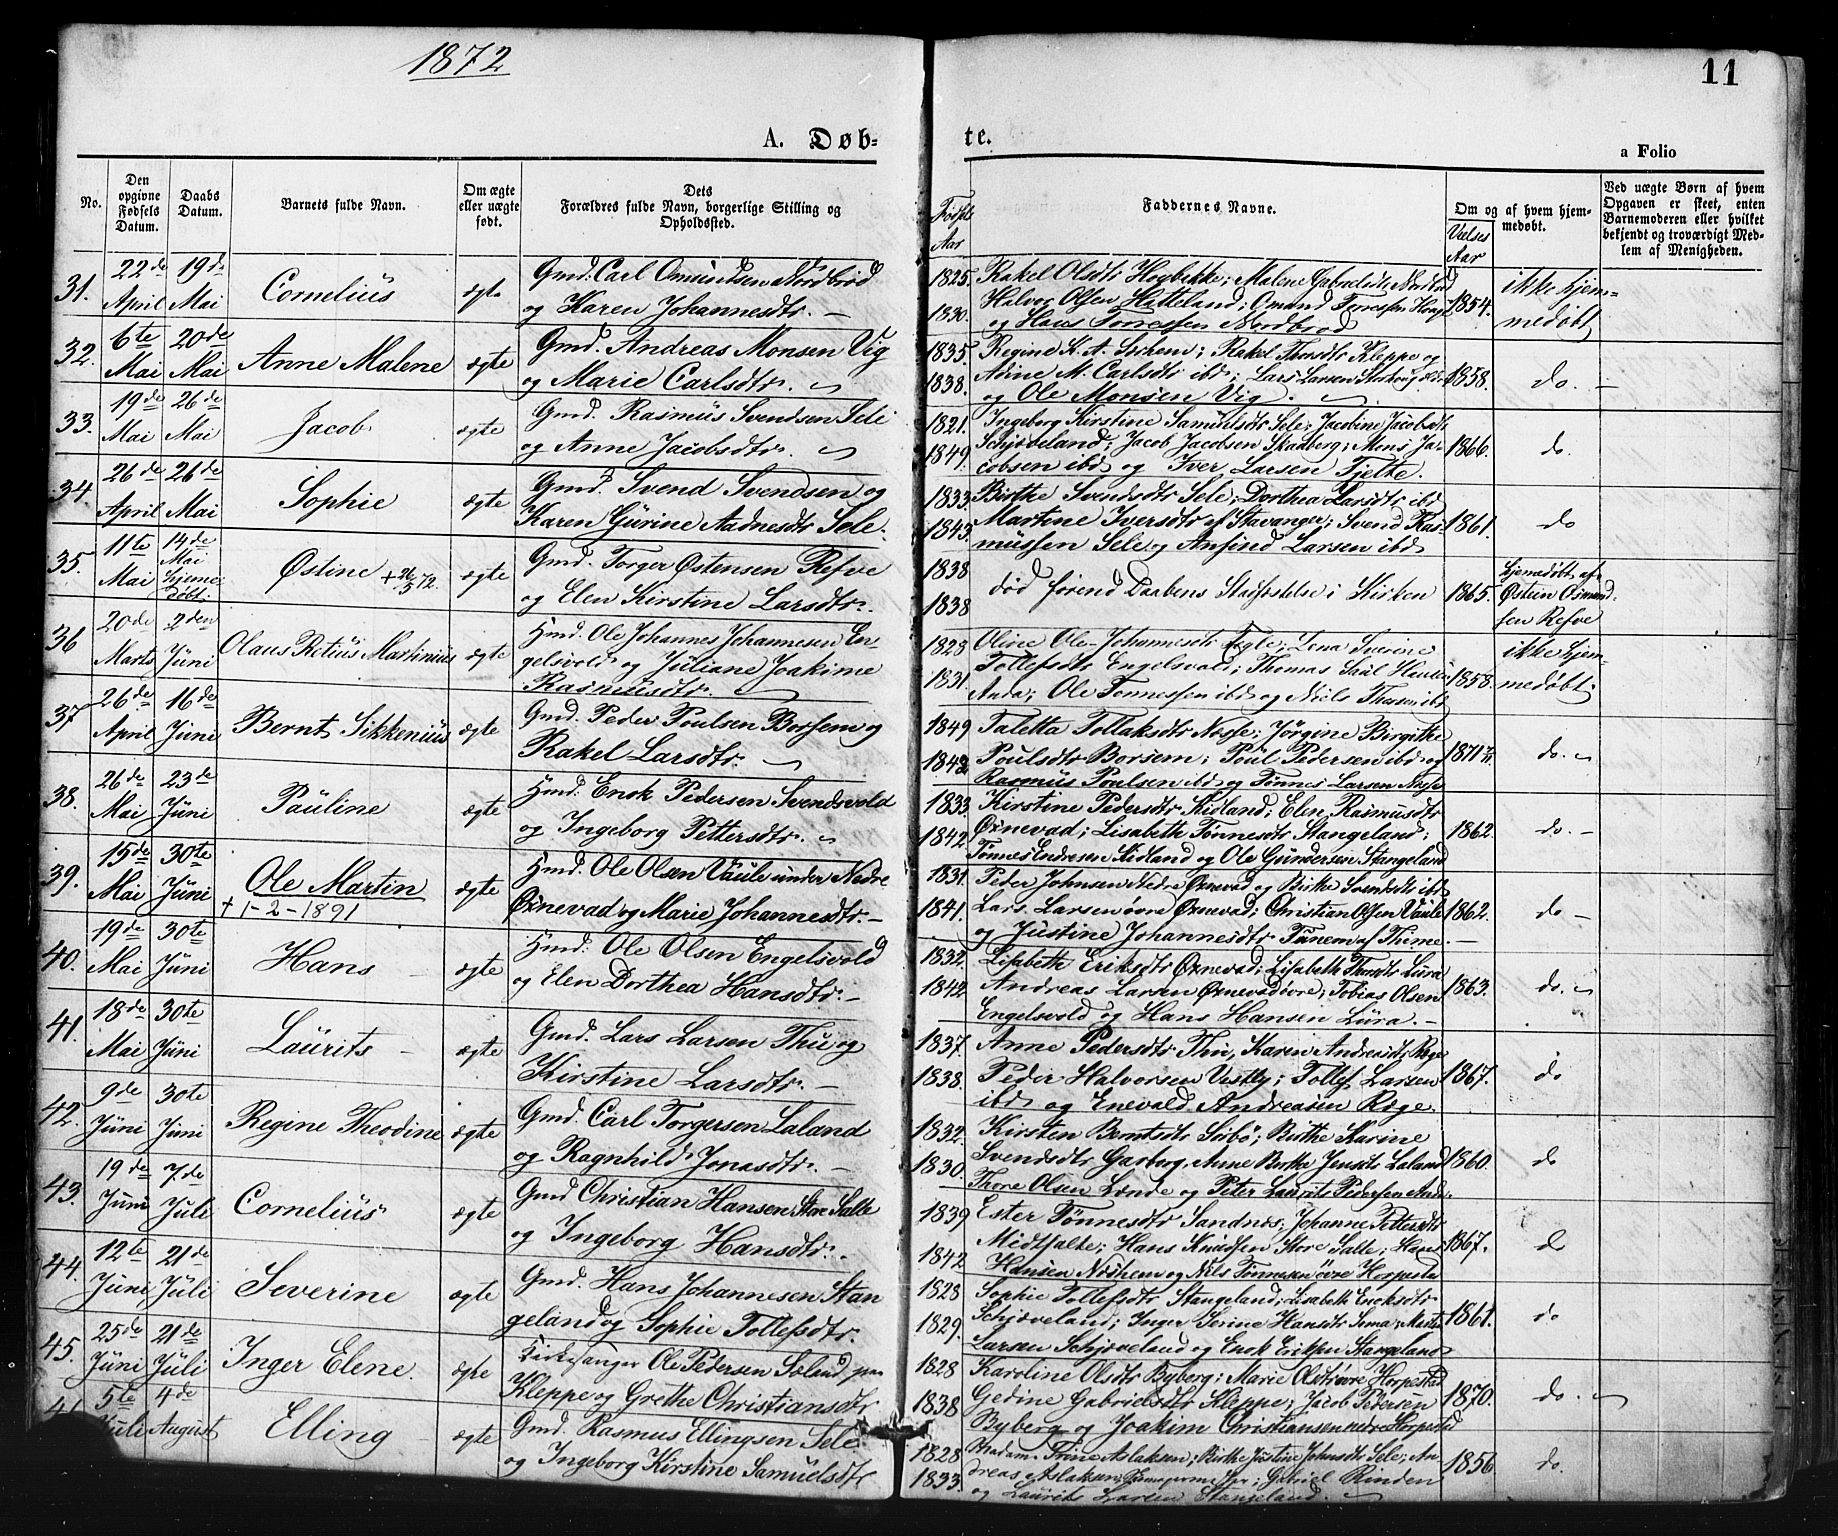 1872
11
A. Døb-
te.
a Folio
No.
Den opgivne Fødsels Datum.
Daabs Datum.
Barnets fulde Navn.
Om ægte eller uægte født.
Dets Forældres fulde Navn, borgerlige Stilling og Opholdssted.
Fødsels Aar
Faddernes Navne.
Vielses Aar
Om og af hvem hjemmedøbt.
Ved uægte Børn af hvem Opgaven er skeet, enten Barnemoderen eller hvilket bekjendt og troværdigt Medlem af Menigheden.
31. 22de April 19de Mai Cornelius ægte
Gmd. Carl Omundsen Nordbrød
og Karen Johannesdtr. –
1825. Rakel Olsdtr Høybakke; Malene Gabrielsdtr Nordbrød
Halvor Olsen Hatteland; Omund Torressen Houge
1830. og Hans Torressen Nordbrød
1854. ikke hjem-
medøbt
32. 6te Mai 20de Mai Anne Malene ægte
Gmd. Andreas Monsen Vig
og Marie Carlsdtr.
1835. Regine K. A. Sørhem; Rakel Thorsdtr Kleppe og
1838. Anne M. Carlsdtr ibd; Lars Larsen
og Ole Monsen Vig.
1858. do. –
33. 19de Mai 26de Mai Jacob ægte
Gmd. Rasmus Svendsen Sele
og Anne Jacobsdtr.
1821. Ingeborg Kirstine Samuelsdtr Sele; Jacobine Jacobsdtr
Schjøveland; Jacob Jacobsen Skadberg; Mons Ja-
1849. cobsen ibd og Iver Larsen Tjelte.
1866. do.
34. 26de April 26de Mai Sophie ægte
Gmd. Svend Svendsen og
Karen Gurine Aadnesdtr Sele.
1833. Birthe Svendsdtr Sele; Dorthea Larsdtr ibd
1845. Martine Iversdtr af Stavanger; Svend Ras-
mussen Sele og Ansind Larsen ibd
1861. do
35. 11te Mai 14de Mai hjeme døbt Østine + 26/5 72. ægte
Gmd. Torger Østensen Refve
og Elen Kirstine Larsdtr.
1838
1838
død førend Daabens Stadfæstelse i Kirken
1865. hjemedøbt af
Østein Osmund-
sen Refve
36 20de Marts 2den Juni Olaus Rotius Martinius ægte
Hmd. Ole Johannes Johannesen En-
gelsvold og Juliane Joakime
Rasmusdtr.
1823 Oline Ole-Johannesdtr; Lena Sverine
Tollefsdtr Engelsvold; Thomas Saul
1831. Anda; Ole Tønnessen ibd og Niels Thorsen ibd
1858. ikke hjem-
medøbt
37 26de April 16de Juni Bernt Sikkenius ægte
Gmd. Peder Poulsen Borsem og
Rakel Larsdtr.
1849 Taletta Tollaksdtr Nosse; Jørgine Birgithe
1849 Poulsdtr Borsem; Poul Pedersen ibd og
Rasmus Poulsen ibd og Tønnes Larsen Nosse
1871 do.
38. 26de Mai 23de Juni Pauline ægte
Hmd. Enok Pedersen Svendsvold
og Ingeborg Pettersdtr.
1833 Kirstine Pedersdtr Kidland; Elen Rasmusdtr
1842 Øxnevad; Lisabeth Tønnesdtr Stangeland;
Tønnes Endresen Kidland og Ole Gundersen Stangeland
1862. do. –
39. 15de Mai 30te Juni Ole Martin ægte
+ 1-2-1891
Hmd. Ole Olsen Vaule under Nedre
Øxnevad og Marie Johannesdtr. –
1831. Peder Johnsen Nedre Øxnevad og Birthe Svendsdtr ibd
1841. Lars Larsen øvre Øxnevad; Christian Olsen Vaule
og Justine Johannesdtr Tunem af Thime. –
1862. do –
40. 19de Mai 30te Juni Hans – ægte
Hmd. Ole Olsen Engelsvold
og Elen Dorthea Hansdtr. –
1832. Lisabeth Eriksdtr Øxnevad; Lisabeth Thorsdtr Lura
1842. Andreas Larsen Øxnevad øvre; Tobias Olsen
Engelsvold og Hans Hansen Lura. –
1863. do.
41. 18de Mai 30te Juni Laurits – ægte
Gmd. Lars Larsen Thu og
Kirstine Larsdtr. –
1837. Anne Pedersdtr Thu, Karen Andreasdtr Ræge
1838. Peder Halvorsen Vestly; Tollef Larsen
ibd og Enevald Andreasen Ræge.
1867. do
42. 9de Juni 30te Juni Regine Theodine ægte
Gmd. Carl Torgersen Laland
og Ragnhild Jonasdtr. –
1832. Kirsten Berntsdtr Sirbø; Birthe Karine
1830. Svendsdtr Garborg, Anne Birthe Jensdtr Laland
Thore Olsen Lende og Peter Laurits Pedersen Anda.
1860. do
43. 19de Juni 7de Juli Cornelius ægte
Gmd Christian Hansen Store Salte
og Ingeborg Hansdtr.
1839 Ester Tønnesdtr Sandnes; Johanne Pettersdtr
Midtsalte; Hans Knudsen Store Salte; Hans
1842 Hansen Næshem og Nils Tønnesen øvre Horpestad
1867. do
44. 12te Juni 21de Juli Severine ægte
Gmd. Hans Johannesen Stan
geland og Sophie Tollefsdtr.
1828 Sophie Tollefsdtr Stangeland; Lisabeth Enoksdtr
Schjøveland; Inger Serine Hansdtr
1829. Larsen Schjøveland og Enok Eriksen Stangeland
1861. do
45. 25de Juni 21de Juli Inger Elene. ægte
Kirkesanger Ole Pedersen Solund paa
Kleppe og Grethe Christiansdtr
1828 Karoline Olsdtr Byberg; Marie Olsdtr øvre Horpestad
1838 Gedine Gabrielsdtr Kleppe; Jacob Pedersen
Byberg og Joakim Christiansen nedre Horpestad
1870. do.
46 5te Juli 4de August Elling ægte
Gmd. Rasmus Ellingsen Sele
og Ingeborg Kirstine Samuelsdtr
1828 Madam Trine Aslaksen; Birthe Justine Johnsdtr Sele; An-
1833. dreas Aslaksen; Gabriel Rinden
og Laurits Larsen Stangeland
1856 do.